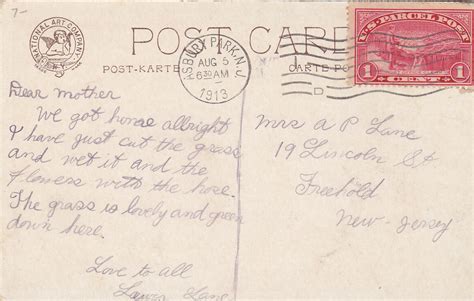 7-
NATIONAL ART COMPANY
POST CARD
POST-KARTE
CARTE PO
ASBURY PARK, N.J.
AUG 5
6 30 AM
1913
U.S. PARCEL POST
1 1
CENT
Dear mother
We got home allright
I have just cut the grass
and wet it and the
flowers with the hose.
The grass is lovely and green
down here.
Love to all
Laura Lane
Mrs A P Lane
19 Lincoln St
Freehold
New-Jersey